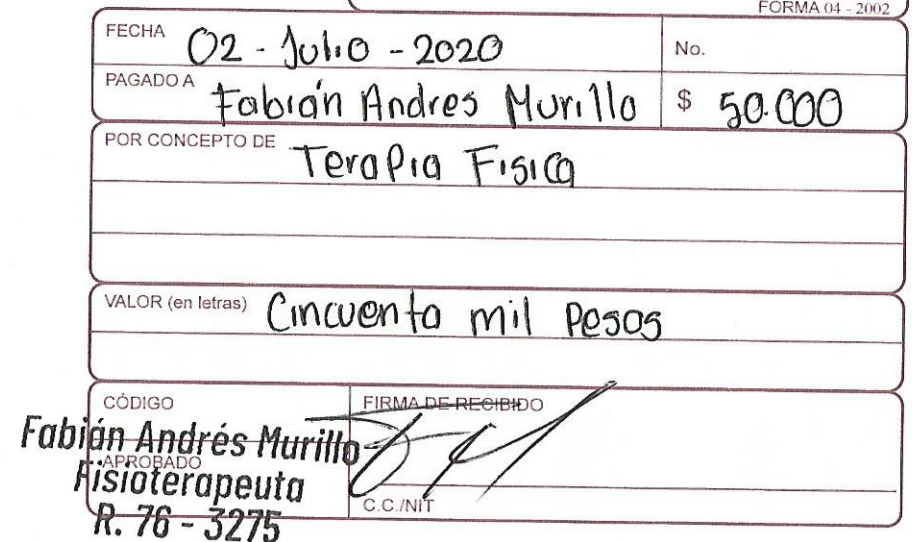 FORMA 04 - 2002
FECHA 02 - Julio - 2020 No.
PAGADO A Fabián Andres Murillo $ 50.000
POR CONCEPTO DE Terapia Fisica
VALOR (en letras) Cincuenta mil Pesos
CÓDIGO FIRMA DE RECIBIDO
Fabián Andrés Murillo
APROBADO
Fisioterapeuta
C.C./NIT
R. 76 - 3275